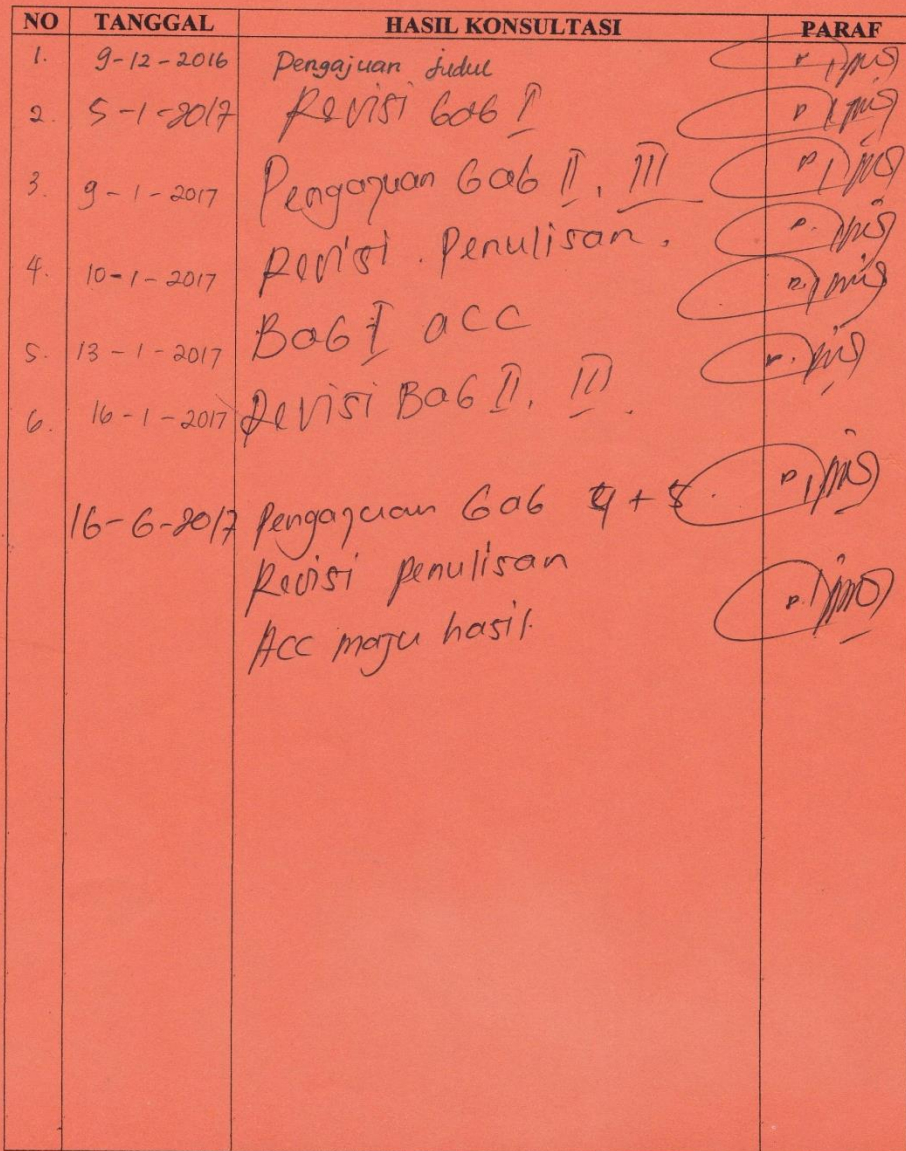 NO TANGGAL HASIL KONSULTASI PARAF
1. 9-12-2016 Pengajuan judul
2. 5-1-2017 Revisi bab I
3. 9-1-2017 Pengajuan bab II, III
4. 10-1-2017 Revisi. Penulisan.
5. 13-1-2017 Bab I acc
6. 16-1-2017 Revisi Bab II, III.
16-6-2017 Pengajuan bab 4+5.
Revisi penulisan
Acc maju hasil.